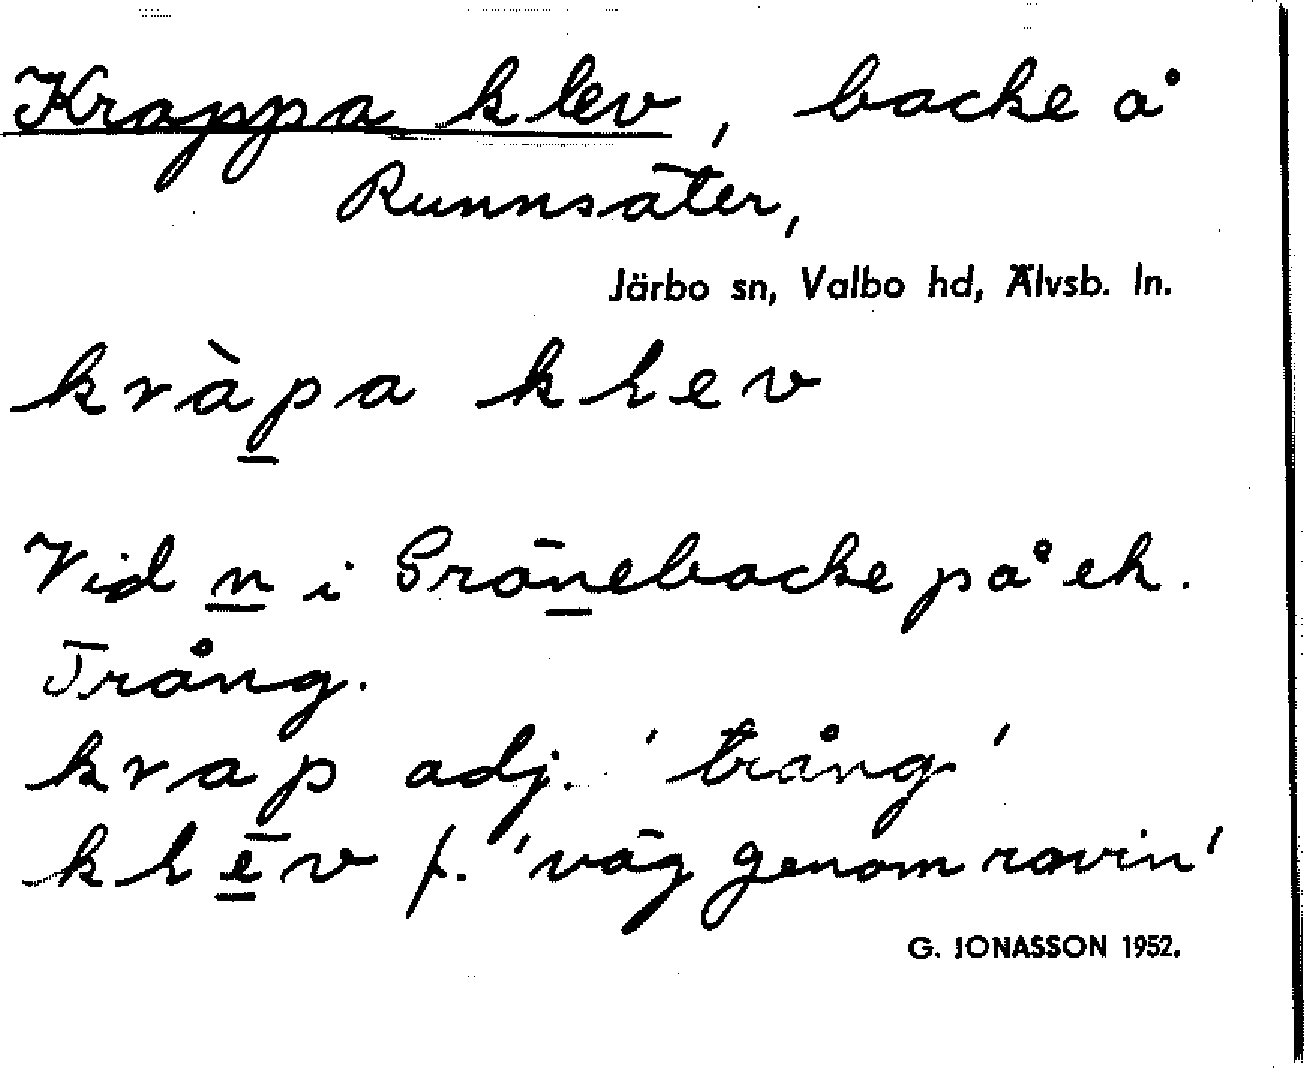 Krappa klev, backe å
Runnsäter,
Järbo sn, Valbo hd, Älvsb. ln.
kràpa klev
Vid n i Grönebacke på ek.
Trång.
krap adj. 'trång'
klēv f. 'väg genom ravin'
G. JONASSON 1952.